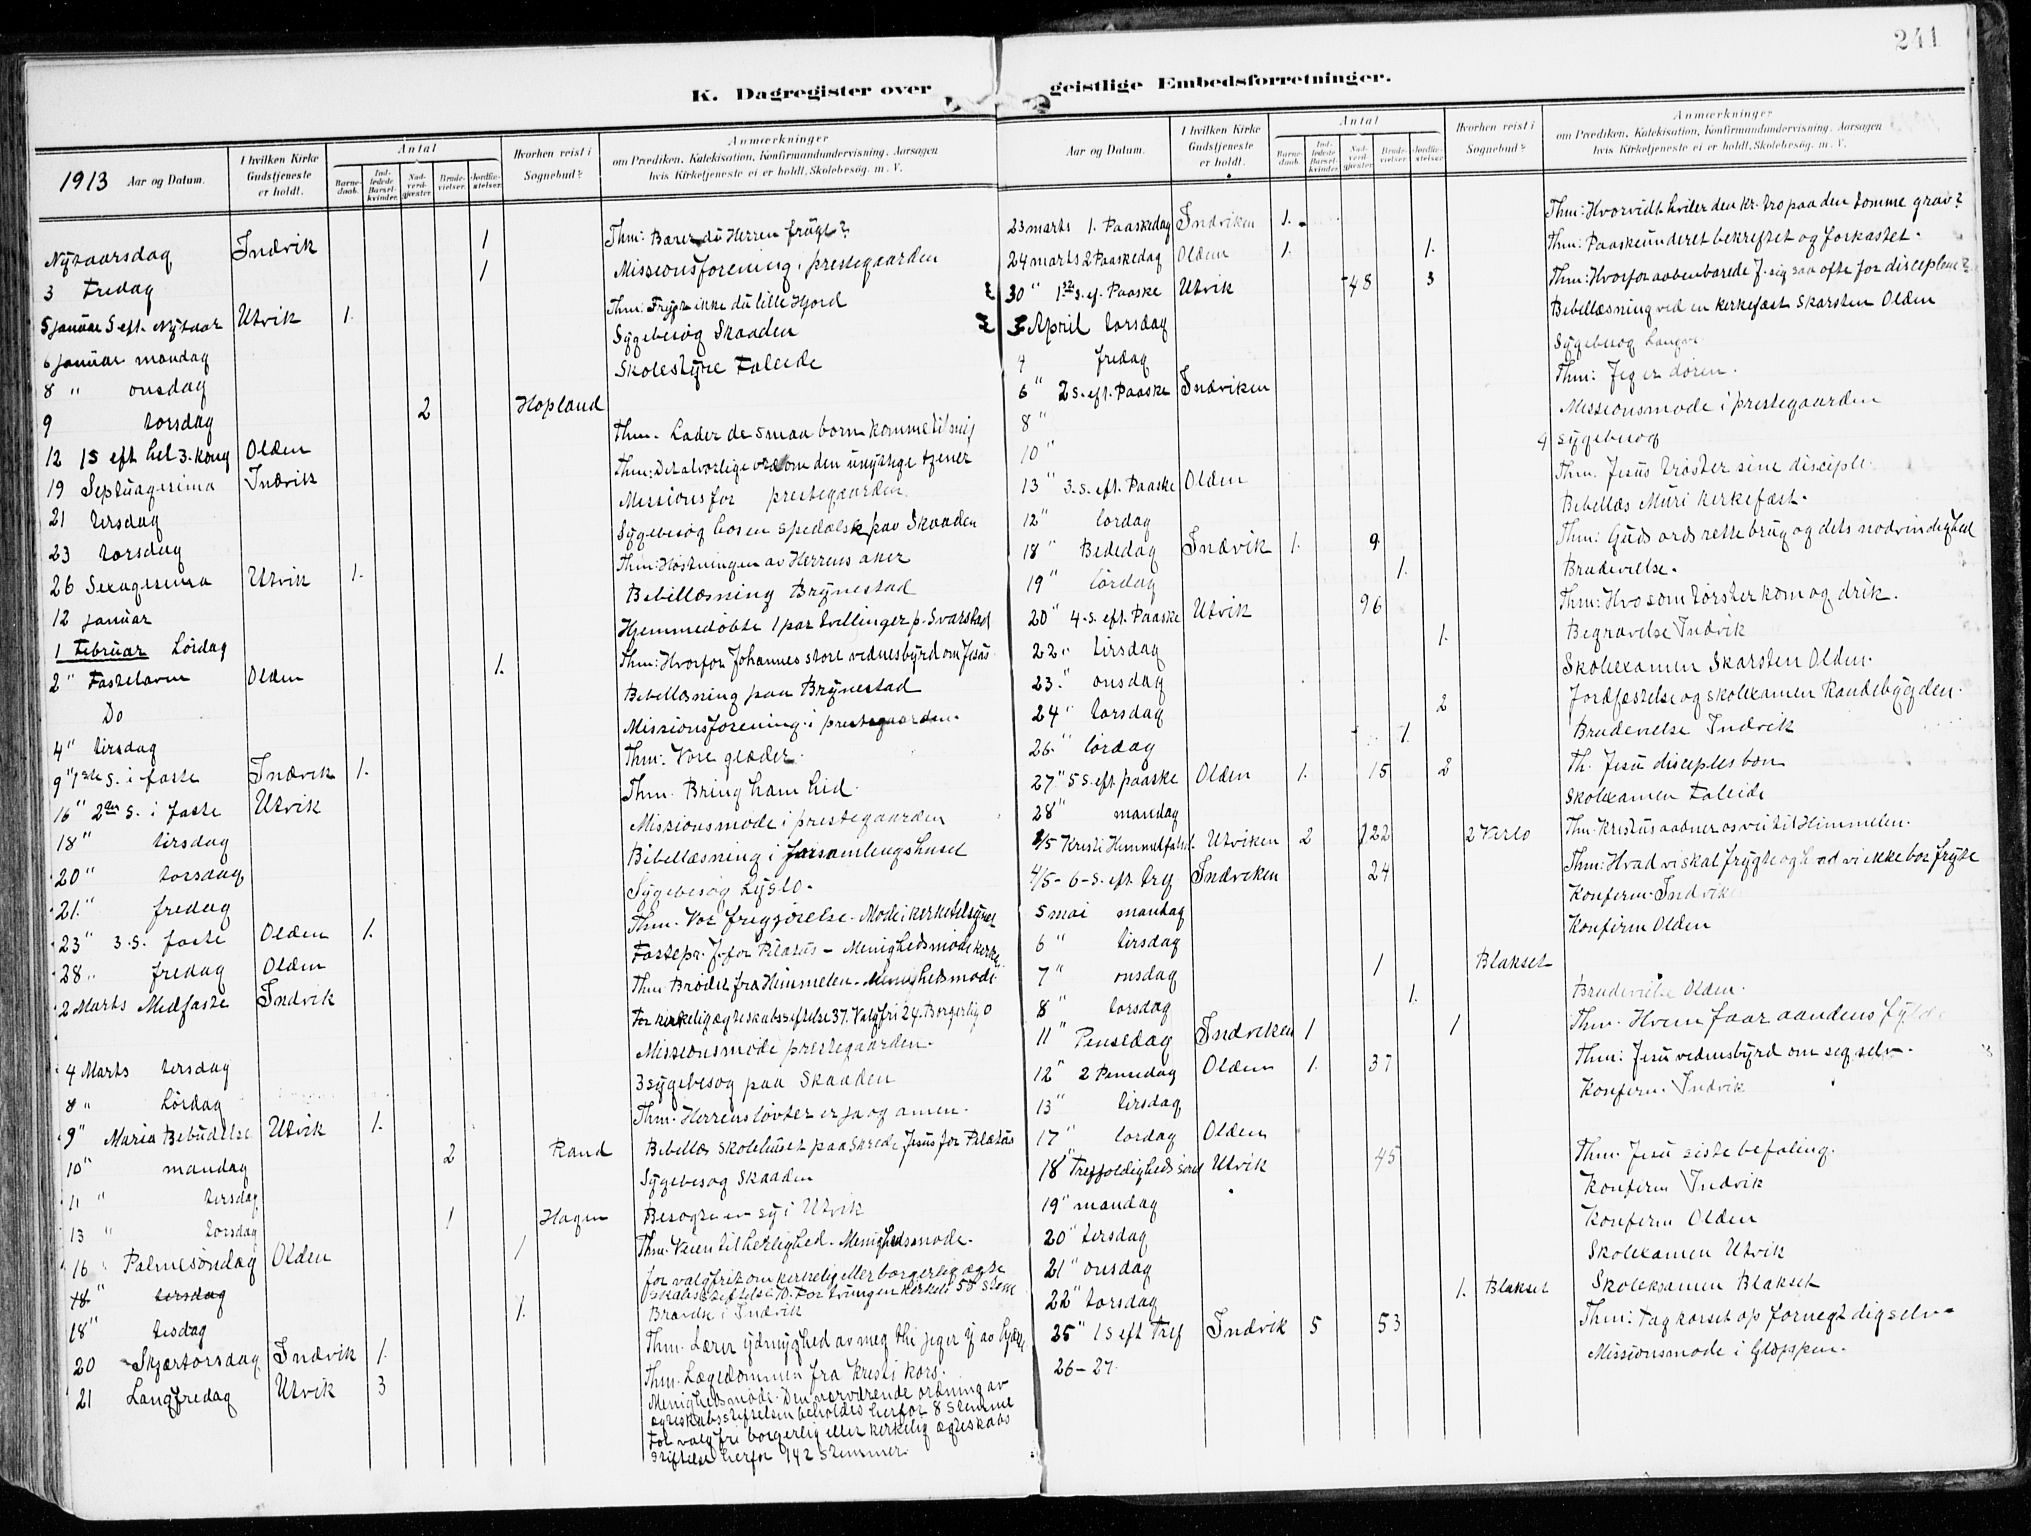 241
K. Dagregister over geistlige Embedsforretninger.
1913 Aar og Datum. I hvilken Kirke Gudstjeneste er holdt. Antal Barnedaab. Indledede Barselkvinder. Nadverdgjester. Brudevielser. Jordfæstelser. Hvorhen reist i Sognebud? Anmærkninger om Prædiken, Katekisation, Konfirmandundervisning, Aarsagen hvis Kirketjeneste ei er holdt, Skolebesøg. m. V.
Nytaarsdag Indvik 1 Thm: Bærer du Herren frugt?
3 Fredag 1 Missionsforening i prestegaarden
5 Januar S eft. Nytaar Utvik 1. Thm: Frygt ikke du lille Hjord
6 januar mandag Sygebesøg Skaaden
8 " onsdag Skolestyre Faleide
9 torsdag 2 Hopland
12 1 S eft hel. 3. kong Olden Thm. Lader de smaa born komme til mig
19 Septuagesima Indvik Thm: Det alvorlige ord om den unyttige tjener
21 tirsdag Missionsfor prestegaarden
23 torsdag Sygebesøg hos en spedalsk paa Skaaden
26 Sexagesima Utvik 1. Thm: Høstningen av Herrens aker
12 januar Bibellæsning Brynestad
1 Februar Lørdag Hjemmedøbte 1 par tvillinger p. Svarstad
2 " Fastelavn Olden 1. Thm: Hvorfor Johannes store vidnesbyrd om Jesus
Do Bibellæsning paa Brynestad
4 " tirsdag Missionsforening i prestegaarden.
9 " 1ste S. i faste Indvik 1. Thm: Vore glæder.
16 " 2den S. i faste Utvik Thm. Bring ham hid.
18 " tirsdag Missionsmøde i prestegaarden
20 " torsdag Bibellæsning i forsamlingshuset
21 " fredag Sygebesøg Lyslo.
23 " 3. S. faste Olden 1. Thm. Vor frigjørelse. Møde i kirketilsynet
28 " fredag Olden Fastepr. J. for Pilatus – Menighedsmøde kirke
2 Marts Midfaste Indvik Thm: Brødet fra Himmelen. Menighedsmøde
For kirkelig ægteskabsstiftelse 37. Valgfri 24. Borgerlig 0
4 Marts tirsdag Missionsmøde prestegaarden.
8 " Lørdag 3 sygebesøg paa Skaaden
9 " Maria Bebudelse Utvik 1. Thm. Herrens løvter er ja og amen.
10 " mandag 2 Rand Bibellæs skolehuset paa Skrede Jesus for Pilatus
11 " tirsdag Sygebesøg Skaaden
13 " torsdag 1 Hagen Besøgte en sy i Utvik
16 " Palmesøndag Olden 1 Thm. Veien til herlighed. Menighedsmøde.
18 " tirsdag for valgfrit om kirkelig eller borgerlig ægteskabsstiftelse 10. For tvungen kirkeli 58 Stem
18 " tirsdag 1. Brandst i Indvik
20 Skjærtorsdag Indvik 1. Thm. Lærer ydmyghed av meg thi jeg er y av hjær
21 Langfredag Utvik 3 Thm. Lægedommen fra Kristi kors.
Menighedsmøde. Den nærværende ordning av
ægteskabsstiftelsen beholdes herfor 8 stemme
For valgfri borgerlig eller kirkelig ægteskabs
stiftelse herfor 142 stemmer.
Aar og Datum. I hvilken Kirke Gudstjeneste er holdt. Antal Barnedaab. Indledede Barselkvinder. Nadverdgjester. Brudevielser. Jordfæstelser. Hvorhen reist i Sognebud? Anmærkninger om Prædiken, Katekisation, Konfirmandundervisning, Aarsagen hvis Kirketjeneste ei er holdt, Skolebesøg. m. V.
23 marts 1. Paaskedag Indviken 1. Thm: Hvorvidt hviler den kr. tro paa den tomme grav?
24 marts 2 Paaskedag Olden 1. 1. Thm: Paaskeunderet bekreftet og forkastet.
30 " 1ste S. ef. Paaske Utvik 48 3 Thm: Hvorfor aabenbarede J. sig saa ofte for disciplene?
3 April torsdag Bibellæsning ved en kirkefæst Skarsten Olden
4 fredag Sygebesøg
6 " 2 S. eft. Paaske Indviken Thm: Jeg er døren.
8 " Missionsmøde i prestegaarden
10 " 4 sygebesøg
13 " 3. S. eft. Paaske Olden Thm. Jesus trøster sine disciple.
12 " lørdag Bibellæs Muri kirkefæst.
18 " Bededag Indvik 1. 9 Thm: Guds ords rette brug og dets nødvindighed
19 " lørdag 1. Brudevielse.
20 " 4. S. eft. Paaske Utvik 96 Thm: Hvo som tørster kom og drik.
22 " tirsdag 1. Begravelse Indvik
23 " onsdag Skolexamen Skarsten Olden.
24 " torsdag 2 Jordfæstelse og skolexamen Randebygden.
26 " lørdag 1. Brudevielse Indvik
27 " 5 S. eft paaske Olden 1. 15 2 Th. Jesu disciples bøn
28 " mandag Skolexamen Faleide
1/5 Kristi Himmelfahrt Utviken 2 122 2 Verlo Thm. Kristus aabner os vei til Himmelen.
4/5 – 6 – S. eft. Indviken 24 Thm: Hvad vi skal frygte og hvad vi ikke bør frygte
5 mai mandag Konferm. Indvik
6 " tirsdag Konferm Olden
7 " onsdag 1 Blakset
8 " torsdag 1. Brudevielse Olden.
11 " Pinsedag Indviken 1 1 Thm. Hvem faar aandens fylde
12 " 2 Pinsedag Olden 1. 37 Thm: Jesu vidnesbyrd om seg selv.
13 " tirsdag Konferm. Indvik
17 " lørdag Olden
18 " Trefoldigheds sønd Utvik 45 Thm. Jesu siste befaling.
19 " mandag Konferm Indvik
20 " tirsdag Konferm Olden
21 " onsdag Skolexamen Utvik
22 " torsdag 1. Blakset Skoleksamen Blakset
25 " 1 S eft Tref Indvik 5 53 Thm: Tag korset op fornegt dig selv.
26 – 27. Missionsmøde i Gloppen.